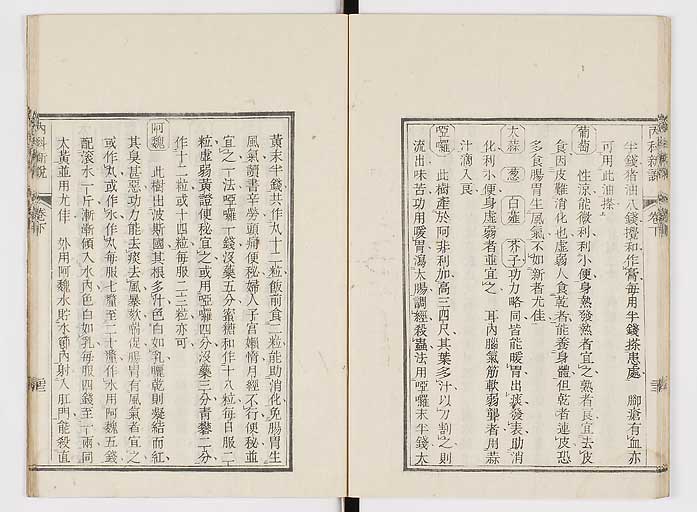 內科新說 卷下
半錢猪油八錢攪和作膏每用半錢搽患處 腳瘡有血亦
可用此油搽
葡萄 性涼能微利利小便身熱發熱者宜之熟者良宜去皮
食因皮難消化也虛弱人食乾者能養身體但乾者連皮恐
多食腸胃生風氣不如新者尤佳
大蒜 葱 白薤 芥子功力略同皆能暖胃出痰發表助消
化利小便身虛弱者並宜之 耳內腦氣筋軟弱聾者用蒜
汁滴入良
啞囉 此樹產於阿非利加高三四尺其葉多汁以刀割之則
流出味苦功用暖胃瀉大腸調經殺蟲法用啞囉末半錢大
黃末半錢共作丸十二粒飯前食二粒能助消化免腸胃生
風氣讀書辛勞頭痛便秘婦人子宮嬾惰月經不行便秘並
宜之一法啞囉一錢沒藥五分蜜糖和作十八粒每日服二
粒虛弱黃證便秘宜之或用啞囉四分沒藥三分青礬二分
作十二粒或十四粒每服二三粒亦可
阿魏 此樹出波斯國其根多汁色白如乳曬乾則凝結而紅
其臭甚惡功力能去痰去風暴欬喘促腸胃有風氣者宜之
或作丸或作水作丸每服七釐至二十釐作水用阿魏五錢
配滾水一斤漸漸傾入水內色白如乳每服四錢至一兩同
大黃並用尤佳 外用阿魏水貯水節內射入肛門能殺直
內科新說 卷下